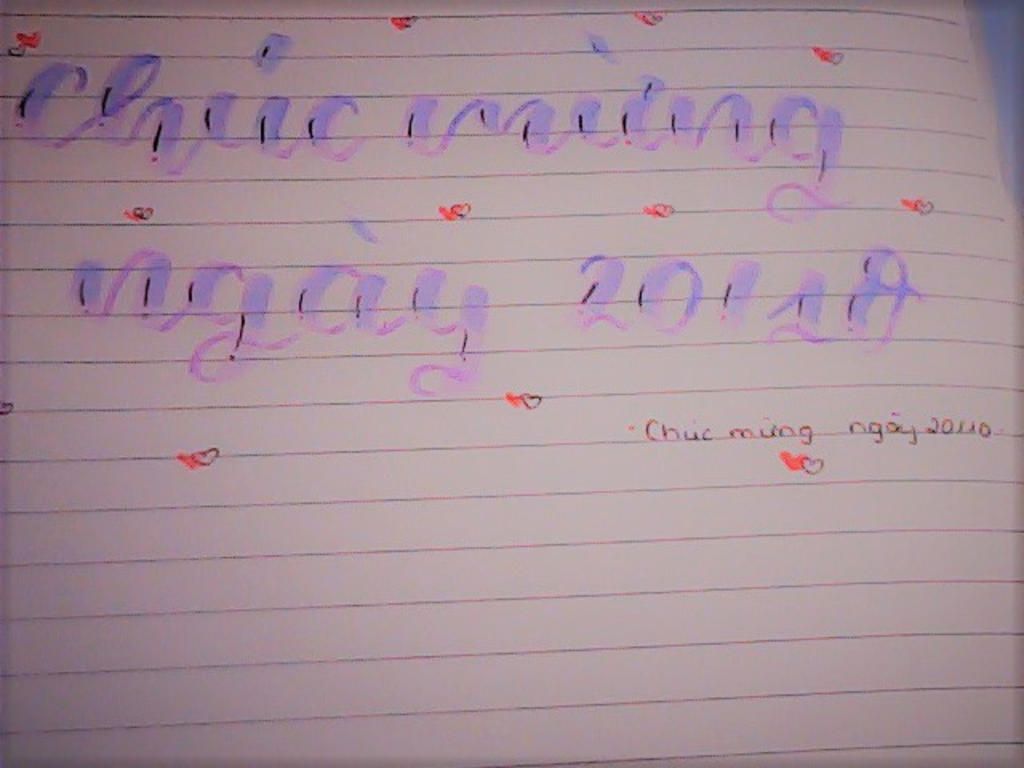 Chúc mừng
ngày 20/10
Chúc mừng ngày 20/10